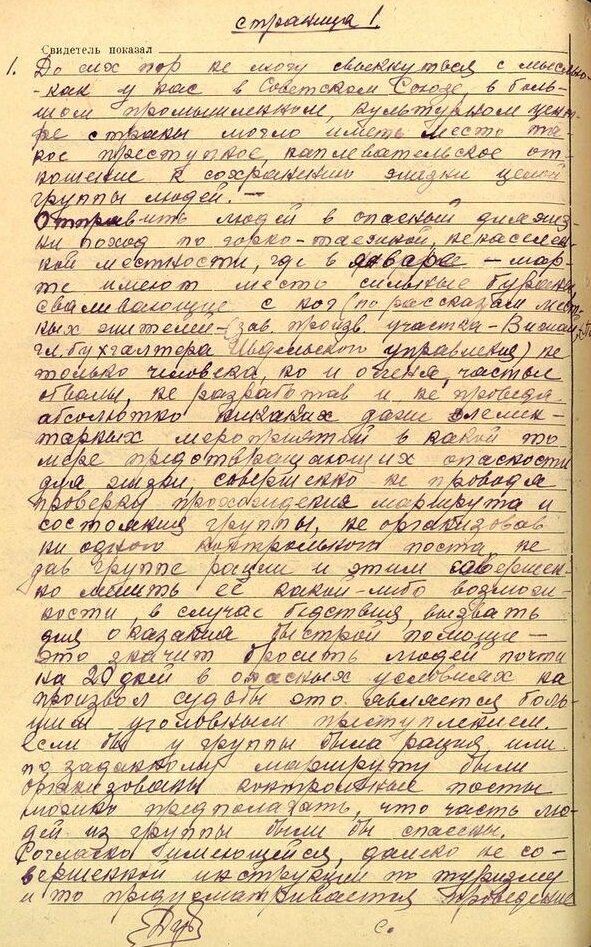 страница 1.
Свидетель показал
1. До сих пор не могу свыкнуться с мыслью-
- как у нас в Советском Союзе, в боль-
шом промышленном, культурном цент-
ре страны могло иметь место та-
кое преступное, наплевательское от-
ношение к сохранению жизни целой
группы людей. —
Отправить людей в опасный для жиз-
ни поход по горно-таежной, ненаселен-
ной местности, где в январе — мар-
те имеют место сильные бураны
сваливающие с ног (по рассказам мест-
ных жителей - (зав. произв. участка -
гл. бухгалтера Ивдельского управления) не
только человека, но и оленя, частые
обвалы, не разработав и не проведя
абсолютно никаких даже элемен-
тарных мероприятий в какой то
мере предотвращающих опасности
для жизни, совершенно не проводя
проверку прохождения маршрута и
состояния группы, не организовав
ни одного контрольного поста, не
дав группе рации и этим совершен-
но лишить её какой-либо возмож-
ности, в случае бедствия, вызвать
для оказания быстрой помощи —
это значит бросить людей почти
на 20 дней в опасных условиях на
произвол судьбы это является боль-
шим уголовным преступлением.
Если бы у группы была рация, или
по заданному маршруту были
организованы контрольные посты
можно предполагать, что часть лю-
дей из группы были бы спасены.
Согласно имеющейся, далеко не со-
вершенной инструкции по туризму
и то предусматривается проведение